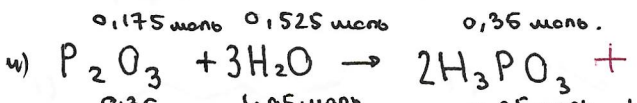 0,175 моль 0,525 моль 0,35 моль.
и) P₂O₃ + 3H₂O → 2H₃PO₃ +